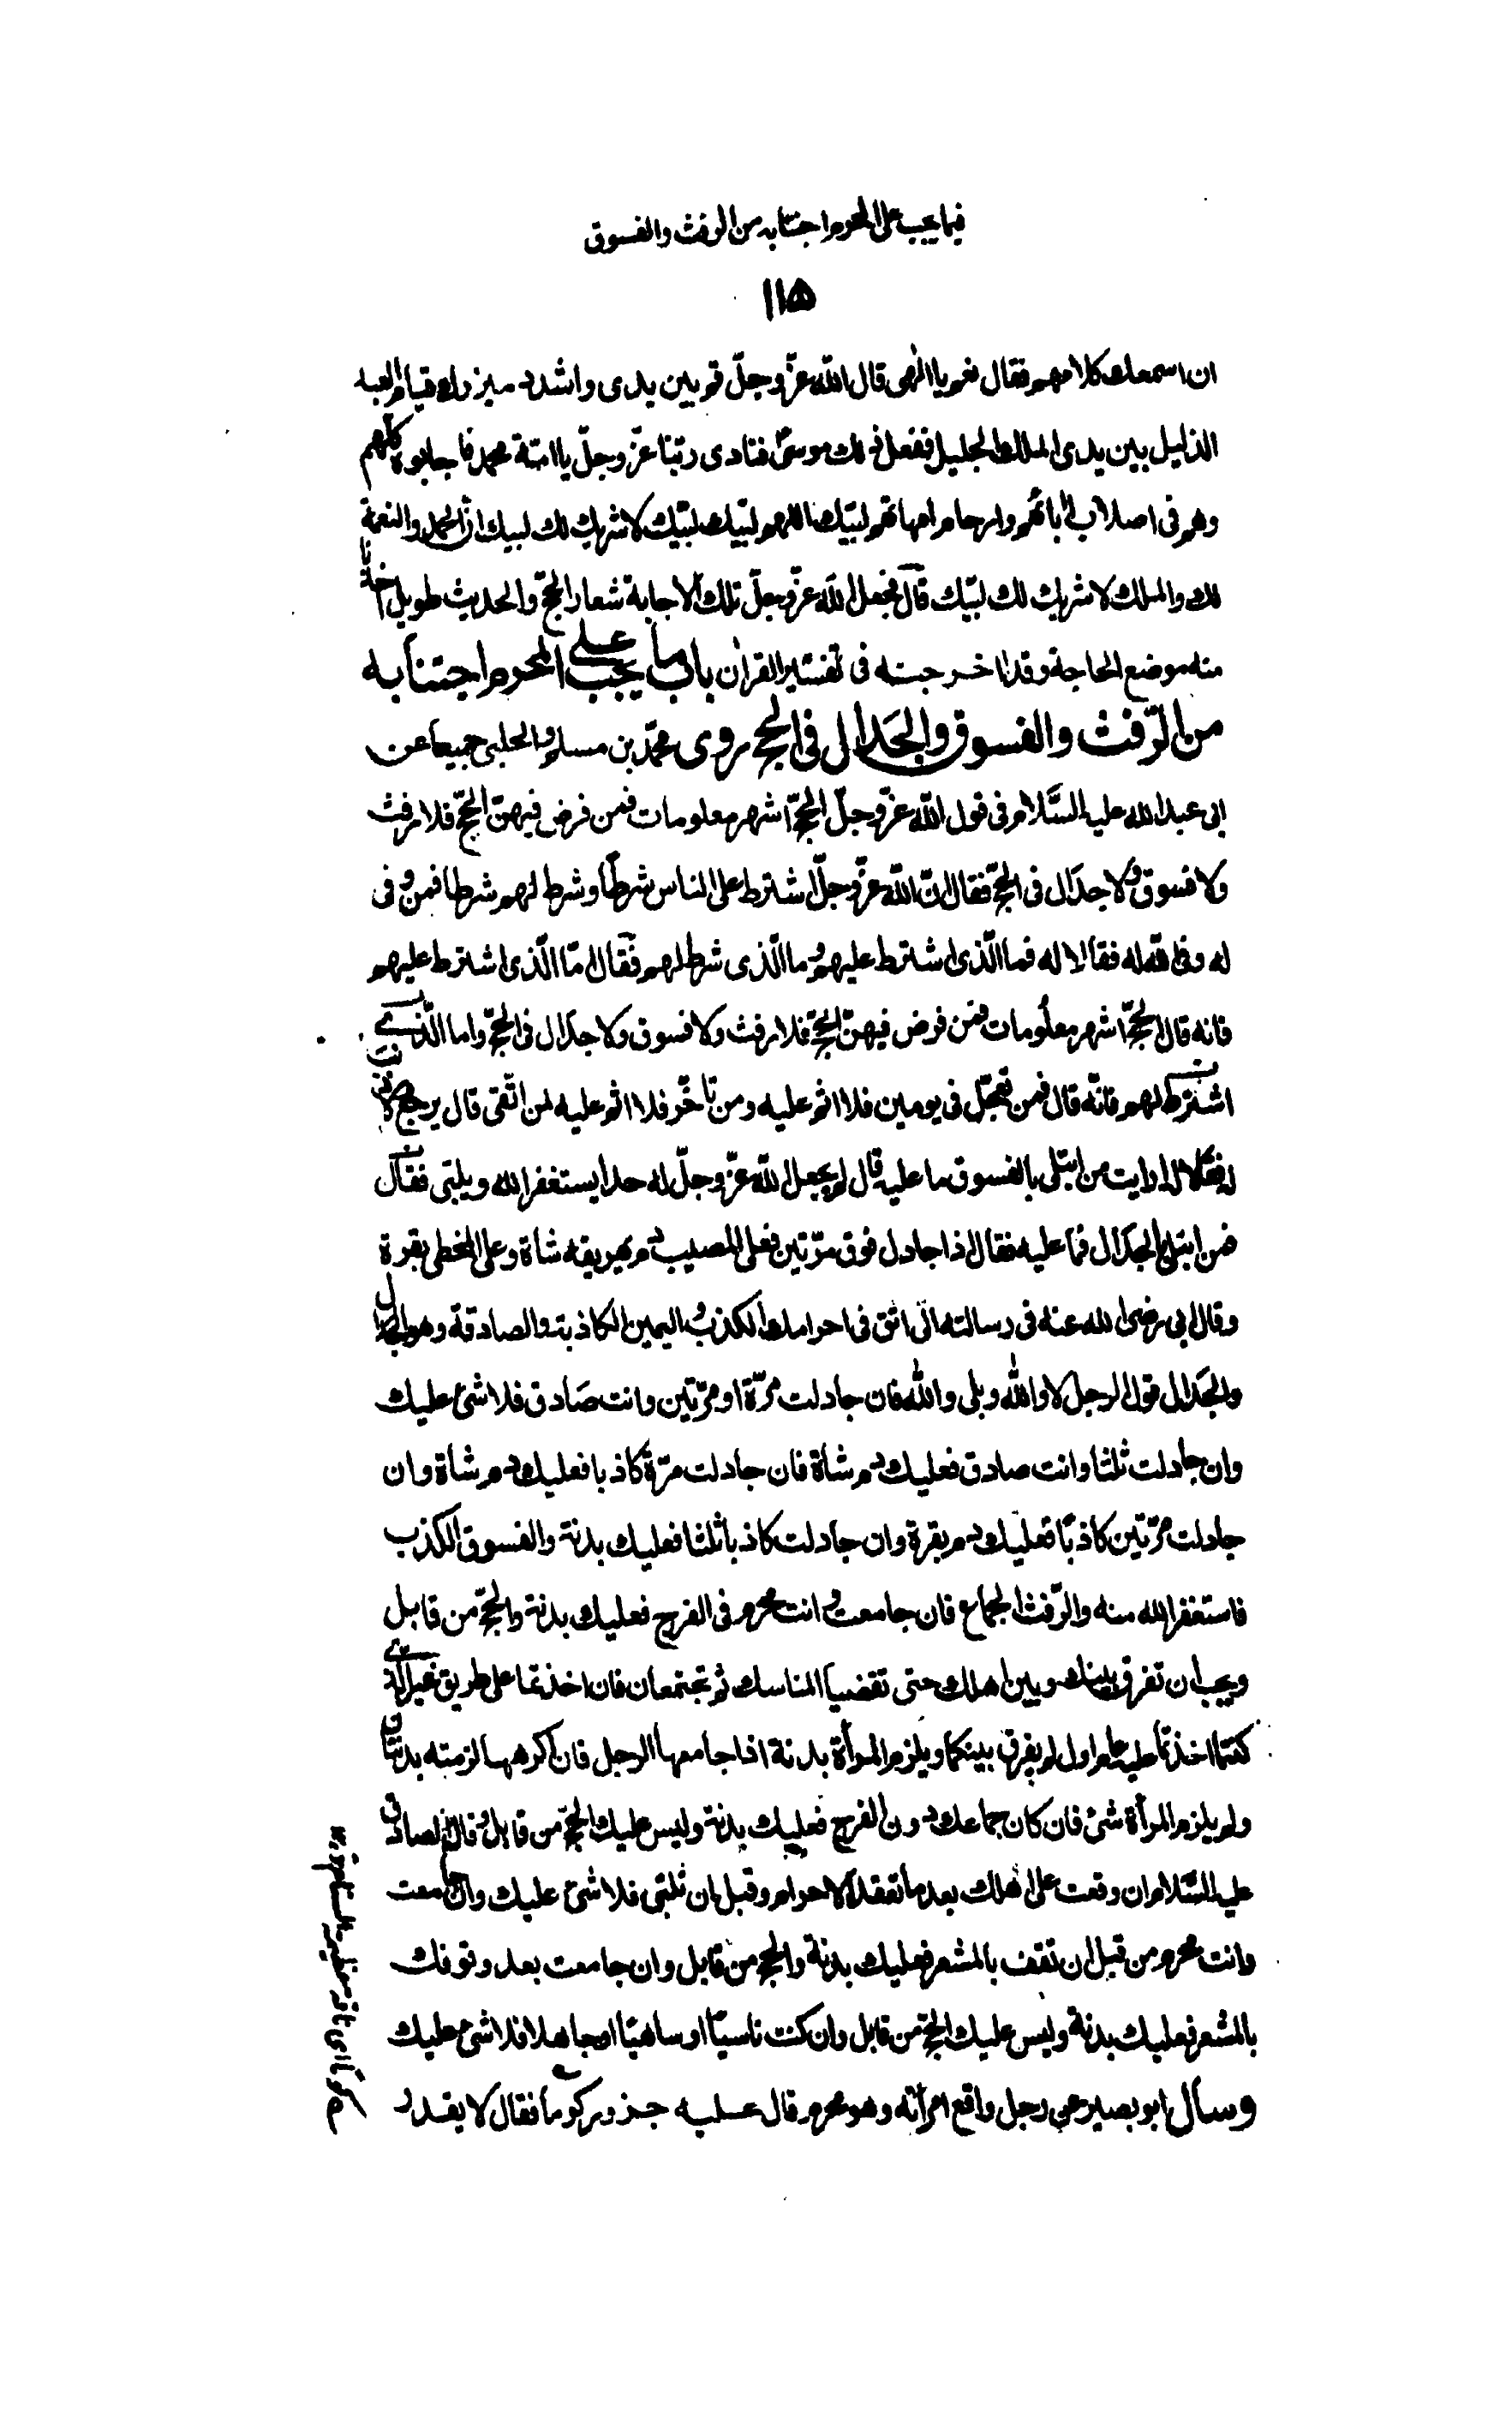 فيما يجب على المحرم اجتنابه من الرفث والفسوق
١١٥
ان اسمعك كلامهم فقال نعم يا الهى قال الله عزّ وجلّ قم بين يدى واشدد ميزرك قيام العبد
الذليل بين يدى الملك الجليل ففعل ذلك موسىٰ فنادى ربّنا عزّ وجلّ يا امّة محمد فاجابوه كلّهم
وهم فى اصلاب ابائهم وارحام امهاتهم لبّيك اللهم لبّيك لبّيك لا شريك لك لبيك ان الحمد والنعمة
لك والملك لا شريك لك لبّيك قال فجعل الله عزّ وجلّ تلك الاجابة شعار الحجّ والحديث طويل اخذنا
منه موضع الحاجة وقد اخرجته فى تفسير القران باب ما يجب على المحرم اجتنابه
من الرّفث والفسوق والجدال فى الحج روى محمّد بن مسلم والحلبى جميعا عن
ابى عبد الله عليه السّلام فى قول الله عزّ وجلّ الحجّ اشهر معلومات فمن فرض فيهنّ الحجّ فلا رفث
ولا فسوق ولا جدال فى الحجّ فقال انّ الله عزّ وجلّ اشترط على الناس شرطًا وشرط لهم شرطا فمن وفى
له وفى الله له فقالا له فما الّذى اشترط عليهم وما الّذى شرط لهم فقال امّا الّذى اشترط عليهم
فانه قال الحجّ اشهر معلومات فمن فرض فيهنّ الحجّ فلا رفث ولا فسوق ولا جدال فى الحجّ واما الّذى
اشترط لهم فانّه قال فمن تعجّل فى يومين فلا اثم عليه ومن تاخّر فلا اثم عليه لمن اتّقى قال يرجع لا ذنب
له فقالا له ارايت من ابتلى بالفسوق ما عليه قال لم يجعل الله عزّ وجلّ له حدا يستغفر الله ويلبّى فقالا
فمن ابتلى بالجدال فما عليه فقال اذا جادل فوق مرّتين فعلى المصيب دم يهريقه شاة وعلى المخطى بقرة
وقال ابى رضى الله عنه فى رسالته الىّ اتق فى احرامك الكذب واليمين الكاذبة والصادقة وهو الجدال
والجدال قول الرجل لا والله وبلى والله فان جادلت مرّة او مرّتين وانت صادق فلا شئ عليك
وان جادلت ثلثا وانت صادق فعليك دم شاة فان جادلت مرّة كاذبا فعليك دم شاة وان
جادلت مرّتين كاذبًا فعليك دم بقرة وان جادلت كاذبا ثلثا فعليك بدنة والفسوق الكذب
فاستغفر الله منه والرّفث الجماع فان جامعت وانت محرم فى الفرج فعليك بدنة والحجّ من قابل
ويجب ان تفرق بينك وبين اهلك حتى تقضيا المناسك ثم تجتمعان فان اخذتما على طريق غير الّذى
كنتما اخذتما عليه عام اول لم يفرق بينكما ويلزم المرأة بدنة اذا جامعها الرجل فان اكرهها لزمته بدنتان
ولم يلزم المرأة شئ فان كان جماعك دون الفرج فعليك بدنة وليس عليك الحجّ من قابل وقال الصادق
عليه السّلام ان وقعت على اهلك بعد ما تعقد الاحرام وقبل ان تلبّى فلا شئ عليك وان جامعت
وانت محرم من قبل ان تقف بالمشعر فعليك بدنة والحج من قابل وان جامعت بعد وقوفك
بالمشعر فعليك بدنة وليس عليك الحجّ من قابل وان كنت ناسيًا او ساهيًا او جاهلا فلا شئ عليك
وسأل ابو بصير عن رجل واقع امرأته وهو محرم قال عليه جزور كوماء فقال لا يقدر